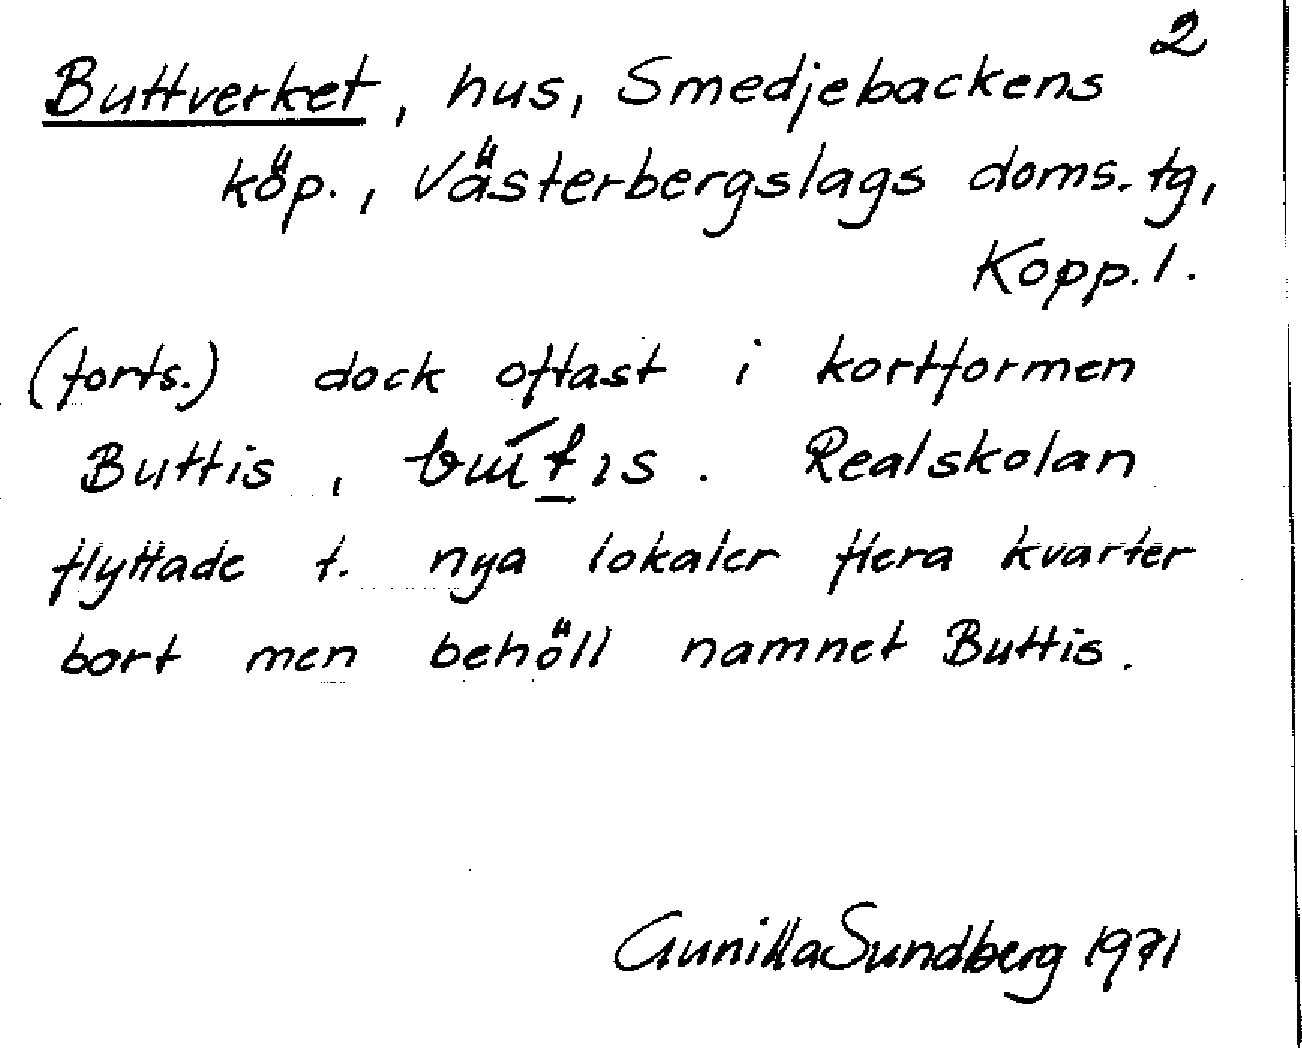 2
Buttverket, hus, Smedjebackens
köp., Västerbergslags doms. tg,
Kopp. l.
(forts.) dock oftast i kortformen
Buttis, . Realskolan
flyttade t. nya lokaler flera kvarter
bort men behöll namnet Buttis.
Gunilla Sundberg 1971